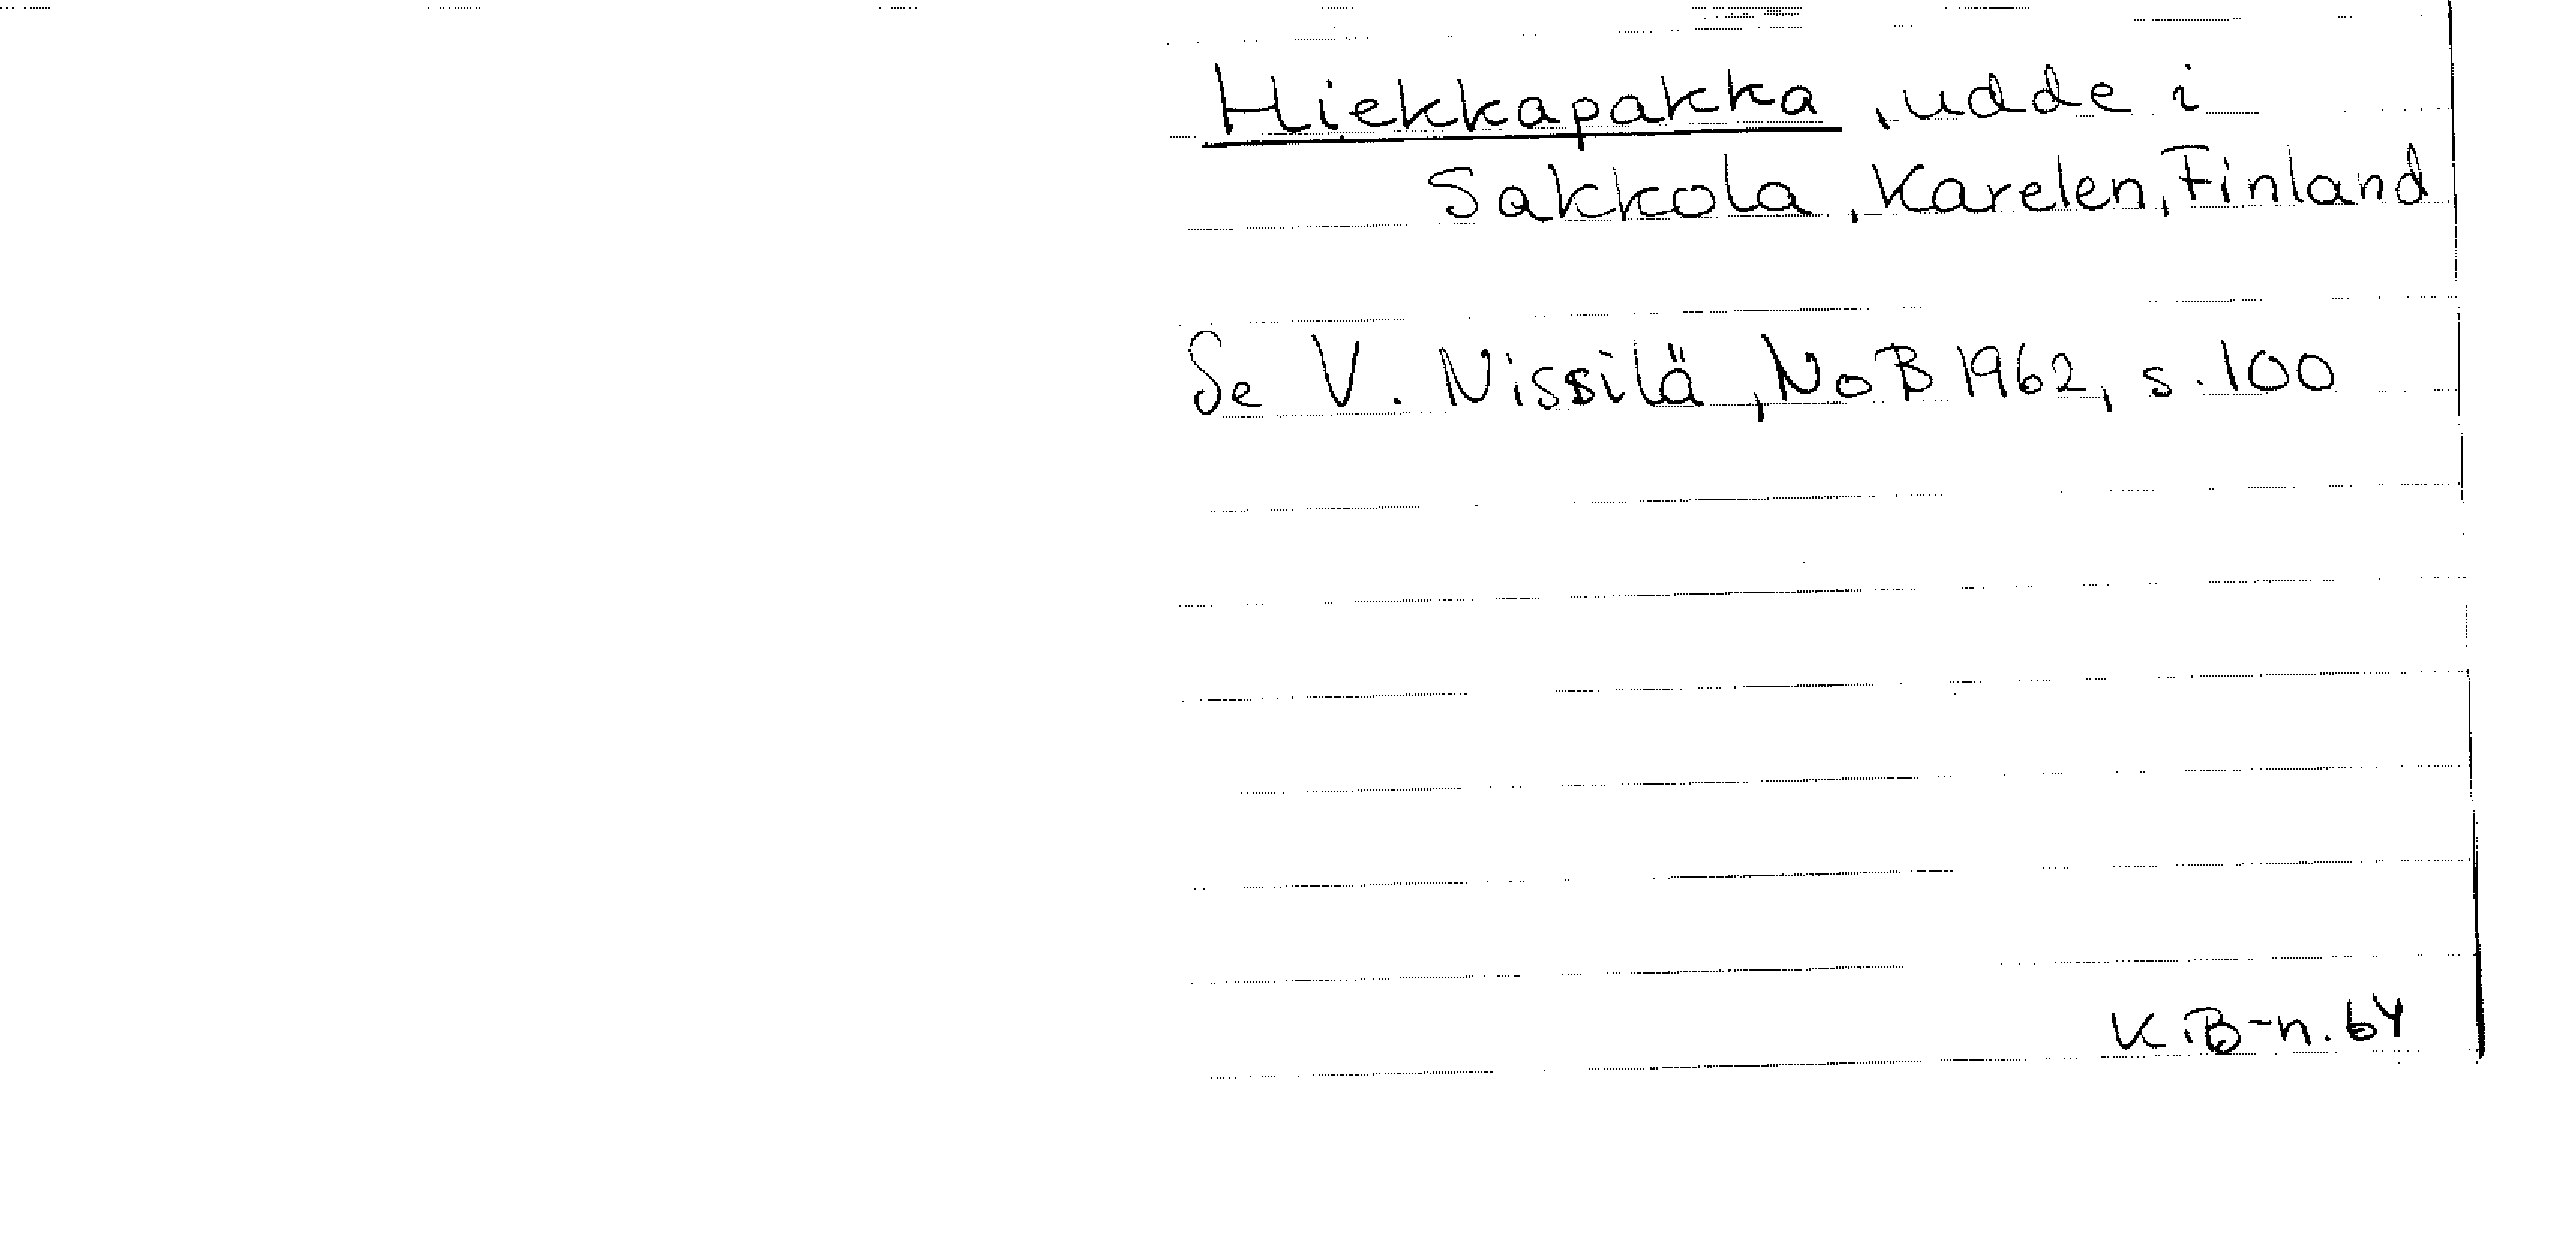 Hiekkapakka, udde i
Sakkola, Karelen, Finland
Se V. Nissilä, NoB 1962, s. 100
K B-n. 64